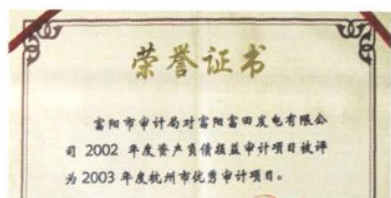 荣誉证书
富阳市审计局对富阳富田发电有限公
司 2002 年度资产负债损益审计项目被评
为 2003 年度杭州市优秀审计项目。